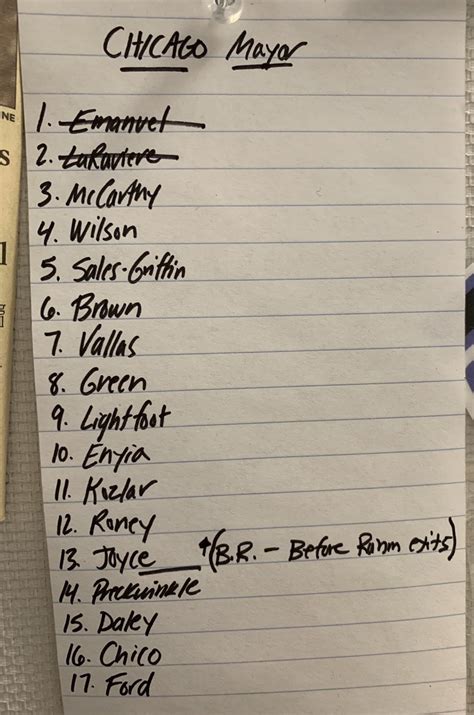 CHICAGO Mayor
1. Emanuel
2. LaRaviere
3. McCarthy
4. Wilson
5. Sales-Griffin
6. Brown
7. Vallas
8. Green
9. Lightfoot
10. Enyia
11. Kozlar
12. Roney
13. Joyce ↑(B.R. - Before Rahm exits)
14. Preckwinkle
15. Daley
16. Chico
17. Ford
NE
S
l